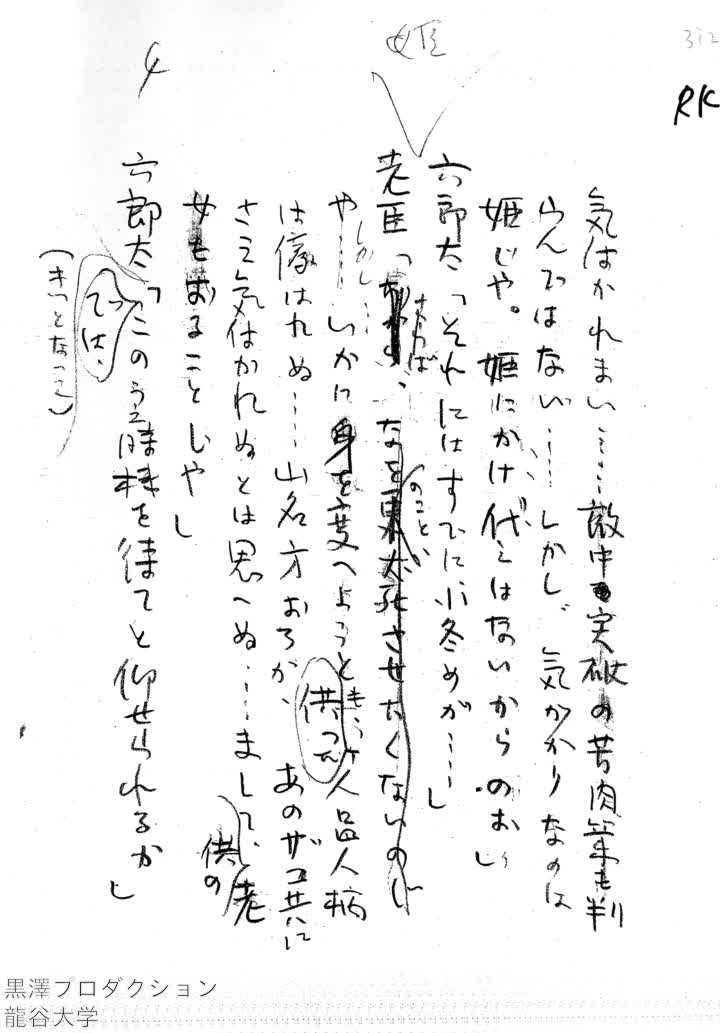 312
RK
姫
4
気はかれまい……敵中突破の苦肉策も判
らんではない……しかし、気がかりなのは
姫じや。姫にかけ代えはないからのお」
六郎太「それにはすでに小冬めが……」
老臣「さらば、なを東太死させたくないのじ
のこと
や……しかし……いかに身を変へようともう人品人柄
は偽はれぬ……山名方おろか、あのザコ共に
供
さえ気はかれぬとは思へぬ……まして、老
供の
女もおることじや」
六郎太「このうえ時機を待てと仰せられるか」
では、
(きっとなって)
黒澤プロダクション
龍谷大学